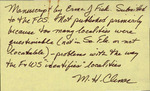 Manuscript by Eman & Fish. Submitted
to the FWS. Not published primarily
because too many localities were
questionable (not in So. Fla. or not
locatable) - problems with the way
the FWS identifies localities
M. H. Clench